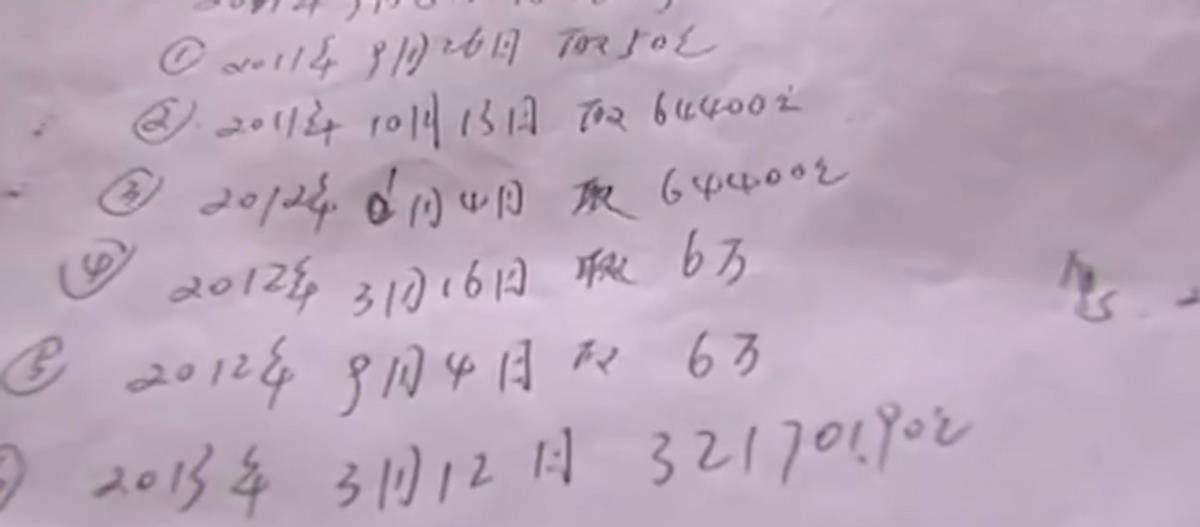 ① 2011年9月26日 取50元
② 2011年10月13日 取64400元
③ 2012年1月4日 取64400元
④ 2012年3月16日 取6万
⑤ 2012年9月4日 取6万
2013年3月12日 321701.90元